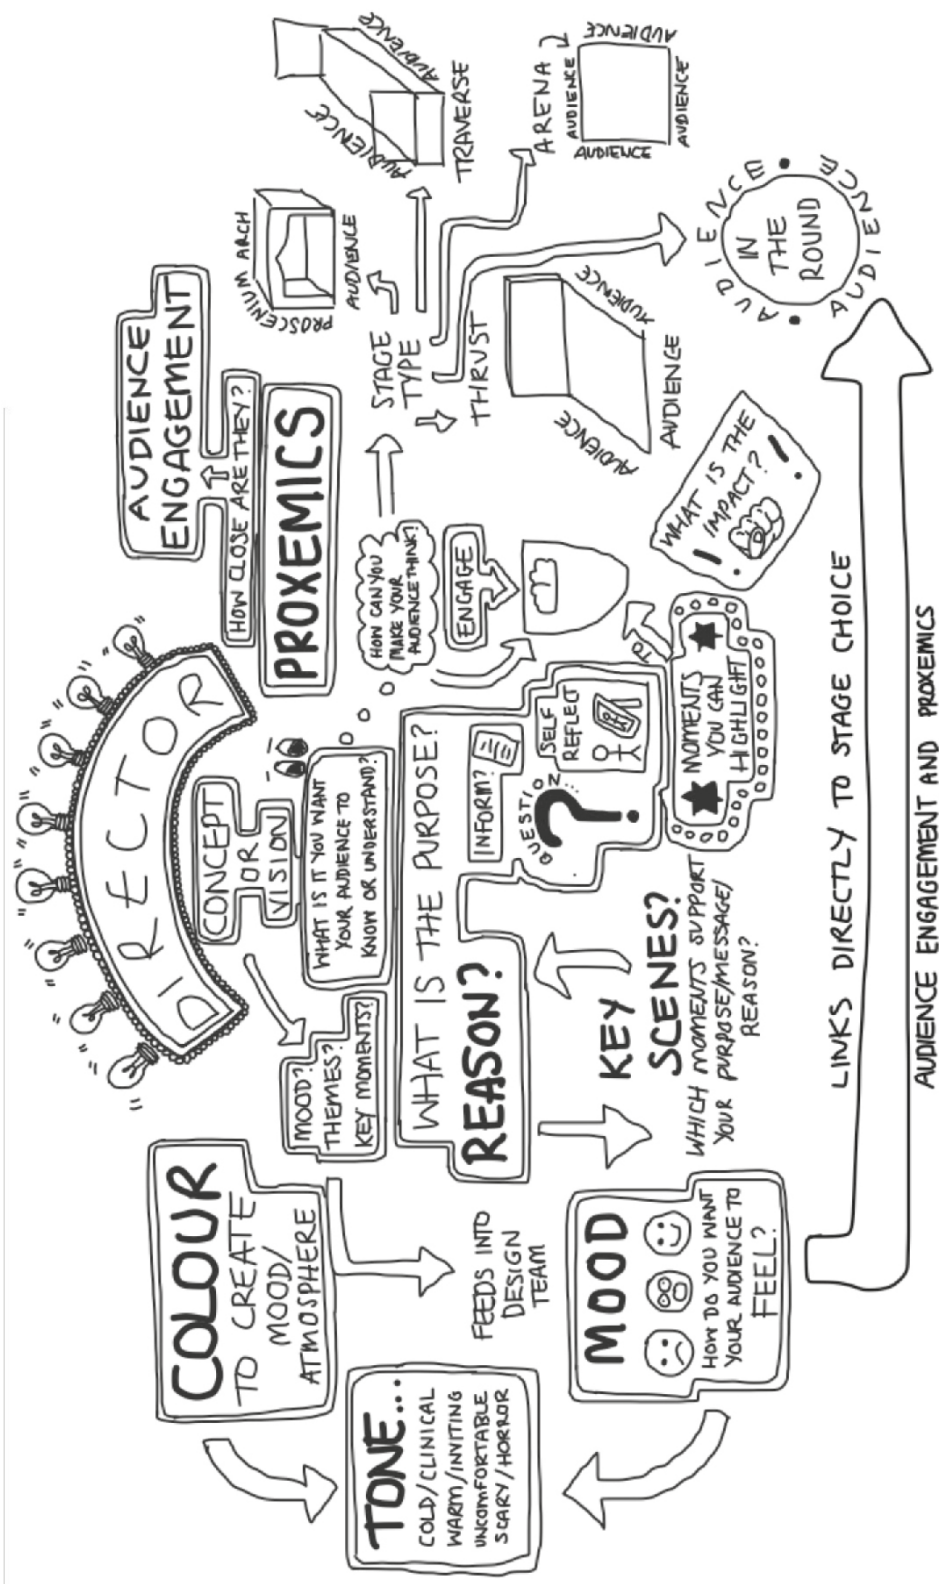 DIRECTOR
CONCEPT
OR
VISION
WHAT IS IT YOU WANT
YOUR AUDIENCE TO
KNOW OR UNDERSTAND?
MOOD?
THEMES?
KEY MOMENTS?
COLOUR
TO CREATE
MOOD/
ATMOSPHERE
TONE...
COLD/CLINICAL
WARM/INVITING
UNCOMFORTABLE
SCARY/HORROR
FEEDS INTO
DESIGN
TEAM
MOOD
HOW DO YOU WANT
YOUR AUDIENCE TO
FEEL?
WHAT IS THE PURPOSE?
REASON?
INFORM?
QUESTION...
?
SELF
REFLECT
KEY
SCENES?
WHICH MOMENTS SUPPORT
YOUR PURPOSE/MESSAGE/
REASON?
MOMENTS
YOU CAN
HIGHLIGHT
TO
HOW CAN YOU
MAKE YOUR
AUDIENCE THINK?
ENGAGE
WHAT IS THE
IMPACT?
! !
AUDIENCE
ENGAGEMENT
HOW CLOSE ARE THEY?
PROXEMICS
STAGE
TYPE
PROSCENIUM ARCH
AUDIENCE
TRAVERSE
AUDIENCE
AUDIENCE
AUDIENCE
AUDIENCE
THRUST
AUDIENCE
AUDIENCE
AUDIENCE
ARENA
AUDIENCE
AUDIENCE
AUDIENCE
AUDIENCE
IN
THE
ROUND
AUDIENCE • AUDIENCE •
LINKS DIRECTLY TO STAGE CHOICE
AUDIENCE ENGAGEMENT AND PROXEMICS